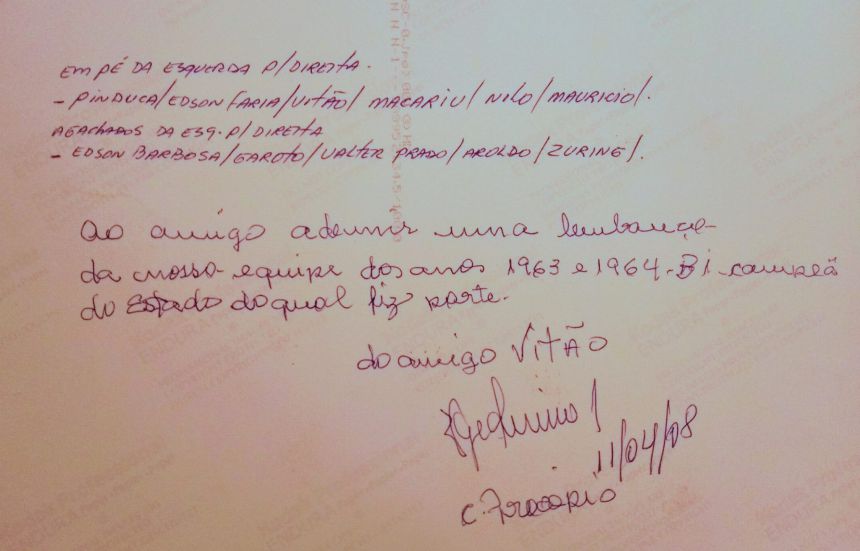 EM PÉ DA ESQUERDA P/DIREITA.
- PINDUCA/EDSON FARIA/VITÃO/ MACARIU/ NILO/MAURICIO/.
AGACHADOS DA ESQ. P/DIREITA
- EDSON BARBOSA/GAROTO/VALTER PRADO/AROLDO/ZURING/.
Ao amigo ademir uma lembrança
da nossa equipe dos anos 1963 e 1964-Bi-campeã
do Estado do qual fiz parte.
do amigo VITÃO
11/04/08
C. Procópio